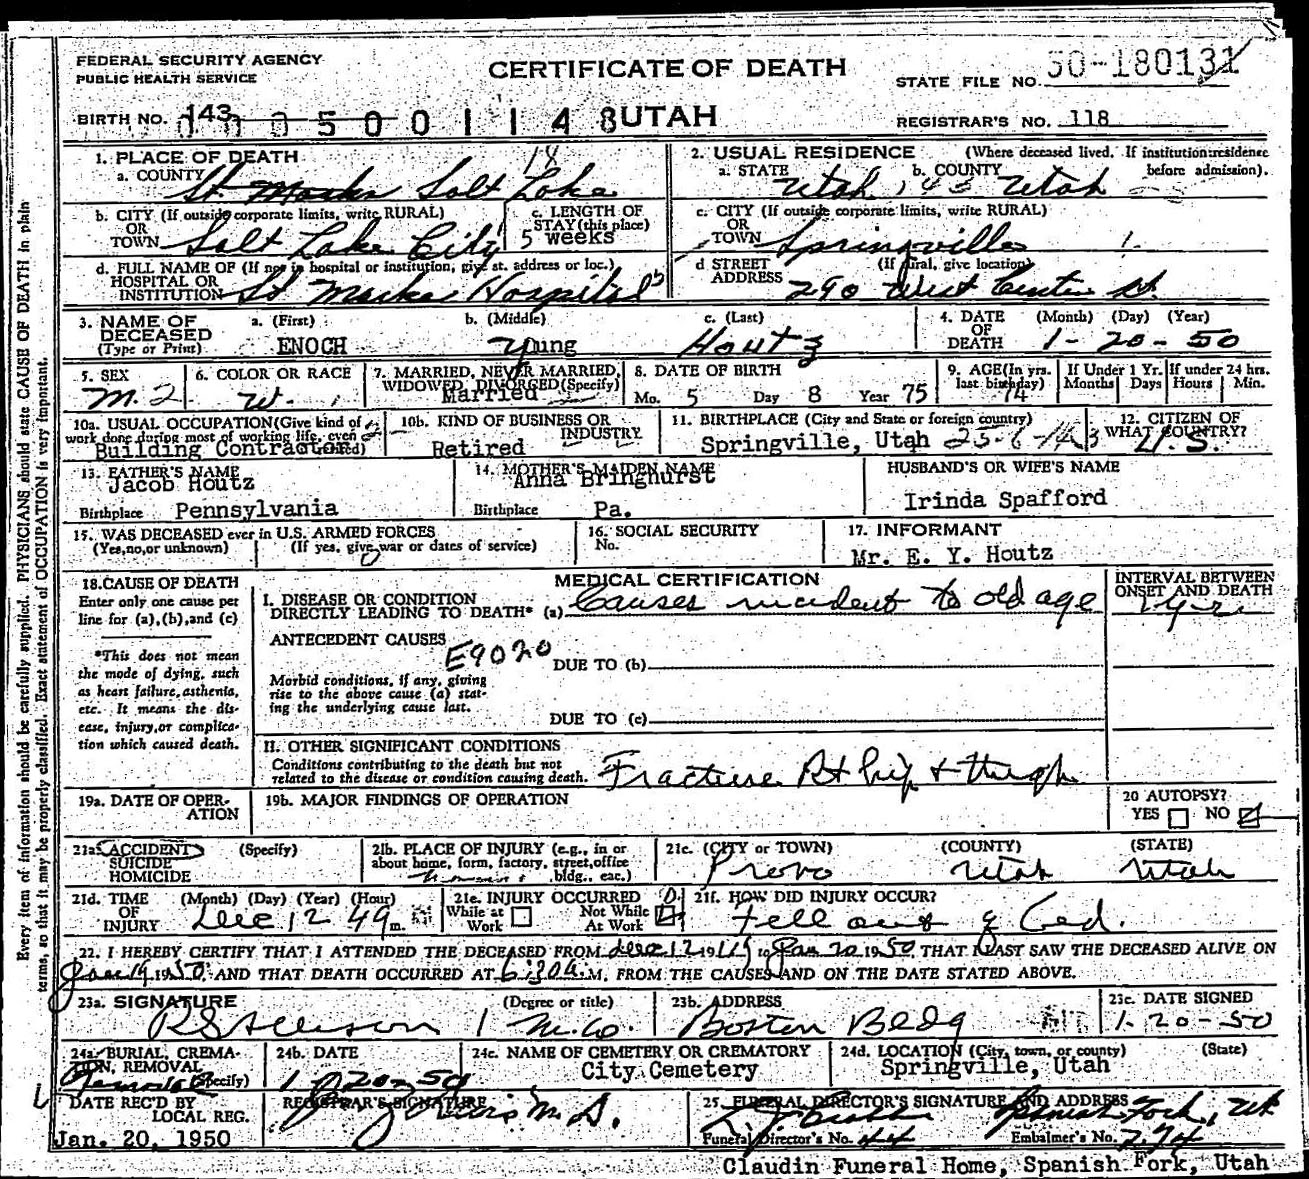 FEDERAL SECURITY AGENCY
PUBLIC HEALTH SERVICE
CERTIFICATE OF DEATH
STATE FILE NO. 50-180131
BIRTH NO. 143 005001148 UTAH
REGISTRAR'S NO. 118
1. PLACE OF DEATH 18
a. COUNTY St. Marks Salt Lake
2. USUAL RESIDENCE (Where deceased lived. If institution: residence before admission).
a. STATE Utah b. COUNTY Utah
b. CITY (If outside corporate limits, write RURAL)
OR
TOWN Salt Lake City
c. LENGTH OF
STAY (this place)
5 weeks
c. CITY (If outside corporate limits, write RURAL)
OR
TOWN Springville
d. FULL NAME OF (If not in hospital or institution, give st. address or loc.)
HOSPITAL OR
INSTITUTION St Marks Hospital
d STREET (If rural, give location)
ADDRESS 290 West Center St.
3. NAME OF DECEASED
(Type or Print)
a. (First) ENOCH
b. (Middle) Young
c. (Last) Houtz
4. DATE OF DEATH (Month) (Day) (Year)
1-20-50
5. SEX
M. 2
6. COLOR OR RACE
W.
7. MARRIED, NEVER MARRIED, WIDOWED, DIVORCED (Specify)
Married
8. DATE OF BIRTH
Mo. 5 Day 8 Year 75
9. AGE (In yrs. last birthday)
74
If Under 1 Yr. Months Days
If under 24 hrs. Hours Min.
10a. USUAL OCCUPATION (Give kind of work done during most of working life, even retired)
Building Contractor
10b. KIND OF BUSINESS OR INDUSTRY
Retired
11. BIRTHPLACE (City and State or foreign country)
Springville, Utah
12. CITIZEN OF WHAT COUNTRY?
U.S.
13. FATHER'S NAME
Jacob Houtz
Birthplace Pennsylvania
14. MOTHER'S MAIDEN NAME
Anna Bringhurst
Birthplace Pa.
HUSBAND'S OR WIFE'S NAME
Irinda Spafford
15. WAS DECEASED ever in U.S. ARMED FORCES
(Yes, no, or unknown) (If yes, give war or dates of service)
16. SOCIAL SECURITY
No.
17. INFORMANT
Mr. E. Y. Houtz
18. CAUSE OF DEATH
Enter only one cause per line for (a), (b), and (c)
*This does not mean the mode of dying, such as heart failure, asthenia, etc. It means the disease, injury, or complication which caused death.
MEDICAL CERTIFICATION
I. DISEASE OR CONDITION
DIRECTLY LEADING TO DEATH* (a) Causes incident to old age
INTERVAL BETWEEN ONSET AND DEATH
ANTECEDENT CAUSES
E9020
DUE TO (b)
Morbid conditions, if any, giving rise to the above cause (a) stating the underlying cause last.
DUE TO (c)
II. OTHER SIGNIFICANT CONDITIONS
Conditions contributing to the death but not related to the disease or condition causing death.
Fracture Rt hip + thigh
19a. DATE OF OPERATION
19b. MAJOR FINDINGS OF OPERATION
20 AUTOPSY?
YES NO
21a. ACCIDENT (Specify)
SUICIDE
HOMICIDE
21b. PLACE OF INJURY (e.g., in or about home, form, factory, street, office bldg., eac.)
21c. (CITY or TOWN) (COUNTY) (STATE)
Provo Utah Utah
21d. TIME OF INJURY (Month) (Day) (Year) (Hour)
Dec 12 49 m.
21e. INJURY OCCURRED
While at Work Not While At Work
21f. HOW DID INJURY OCCUR?
Fell out of Bed.
22. I HEREBY CERTIFY THAT I ATTENDED THE DECEASED FROM Dec 12 19 to Jan 20 1950, THAT I LAST SAW THE DECEASED ALIVE ON
Jan 19, 1950, AND THAT DEATH OCCURRED AT 6:30a.M, FROM THE CAUSES AND ON THE DATE STATED ABOVE.
23a. SIGNATURE (Degree or title)
23b. ADDRESS
Boston Bldg
23c. DATE SIGNED
1-20-50
24a. BURIAL, CREMATION, REMOVAL (Specify)
24b. DATE
24c. NAME OF CEMETERY OR CREMATORY
City Cemetery
24d. LOCATION (City, town, or county) (State)
Springville, Utah
DATE REC'D BY LOCAL REG.
Jan. 20, 1950
REGISTRAR'S SIGNATURE
M.D.
25. FUNERAL DIRECTOR'S SIGNATURE AND ADDRESS
Spanish Fork, Ut
Funeral Director's No. 44
Embalmer's No. 274
Claudin Funeral Home, Spanish Fork, Utah
Every item of information should be carefully supplied. PHYSICIANS should state CAUSE OF DEATH in plain
terms, so that it may be properly classified. Exact statement of OCCUPATION is very important.